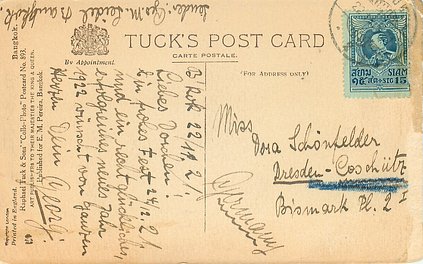 Sender: Geo. M. Seidel Bangkok.
TUCK'S POST CARD
CARTE POSTALE.
By Appointment.
(FOR ADDRESS ONLY)
Raphael Tuck & Sons' "Collo-Photo" Postcard No. 89. Bangkok.
ART PUBLISHERS TO THEIR MAJESTIES THE KING & QUEEN.
Published for E. M. Pereira, Bangkok.
Printed in England.
สยาม SIAM
๑๕ สต.-STG 15
B'kok 22/9.21
Liebes Dorchen!
Ein frohes Fest 24/12.21
und ein recht glückliches,
erfolgreiches neues Jahr
1922 wünscht von ganzem
Herzen Dein Georg.
Miss
Dora Schönfelder
Dresden-Coschütz
Bismark Pl. 2 I
Germany